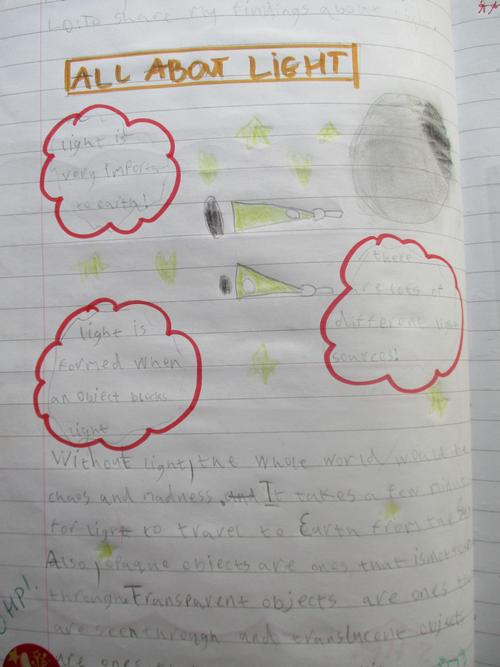 LO: To share my findings about
ALL ABOUT LIGHT
light is
very import
to earth!
there
are lots of
different light
sources!
light is
formed when
an object blocks
light
Without light, the whole world would be
chaos and madness. It takes a few minut
for light to travel to Earth from the
Also, opaque objects are ones that is not
through. Transparent objects are ones
are seen through and translucent objects
are ones